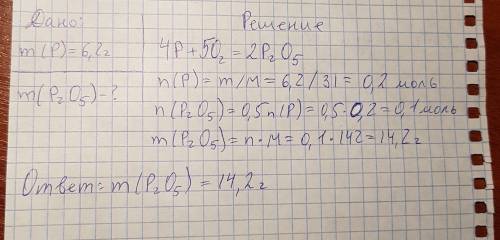 Дано:
m(P)=6,2г
m(P₂O₅)-?
Решение
4P+5O₂=2P₂O₅
n(P)=m/M=6,2/31=0,2 моль
n(P₂O₅)=0,5n(P)=0,5·0,2=0,1 моль
m(P₂O₅)=n·M=0,1·142=14,2г
Ответ: m(P₂O₅)=14,2г